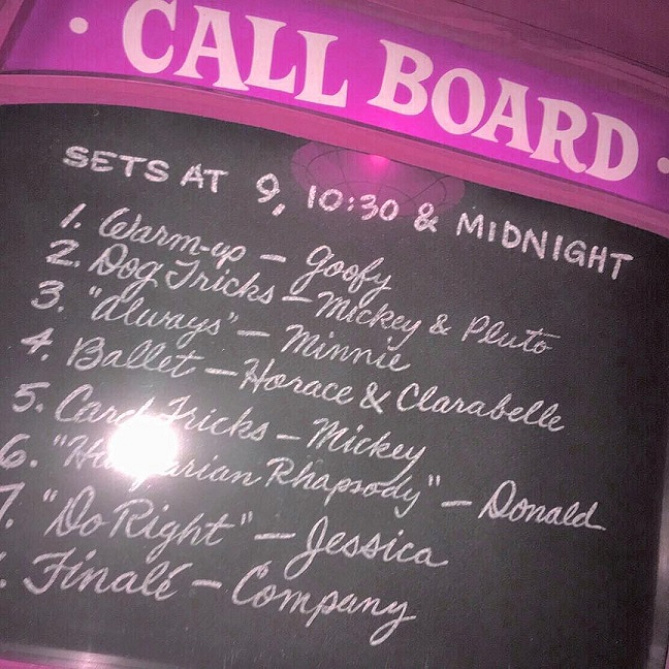 • CALL BOARD •
SETS AT 9, 10:30 & MIDNIGHT
1. Warm-up – Goofy
2. Dog Tricks – Mickey & Pluto
3. "Always" – Minnie
4. Ballet – Horace & Clarabelle
5. Card Tricks – Mickey
6. "Hungarian Rhapsody" – Donald
7. "Do Right" – Jessica
. Finalé – Company